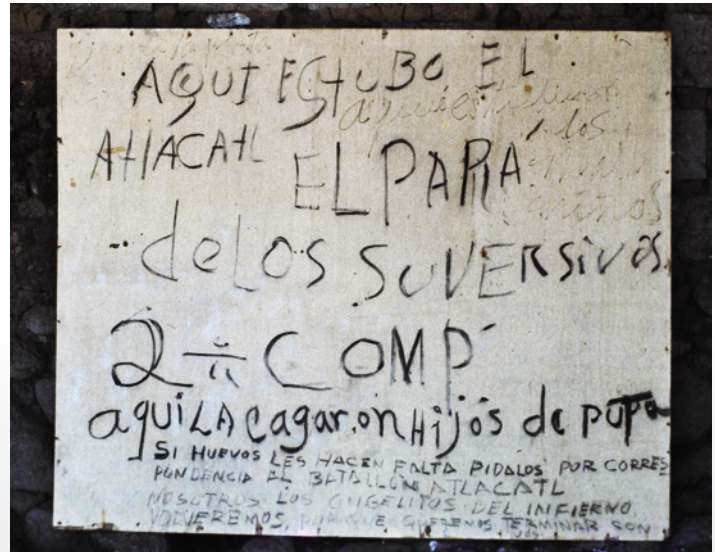 AQUI ESTUBO EL
ATLACATL EL PAPÁ
de LOS SUVERSIVOS
2ª COMP
aqui LA cagaron Hijos de puta
SI HUEVOS LES HACEN FALTA PIDALOS POR CORRES
PONDENCIA AL BATALLON ATLACATL
NOSOTROS LOS ANGELITOS DEL INFIERNO
VOLVEREMOS, PORQUE QUEREMOS TERMINAR CON